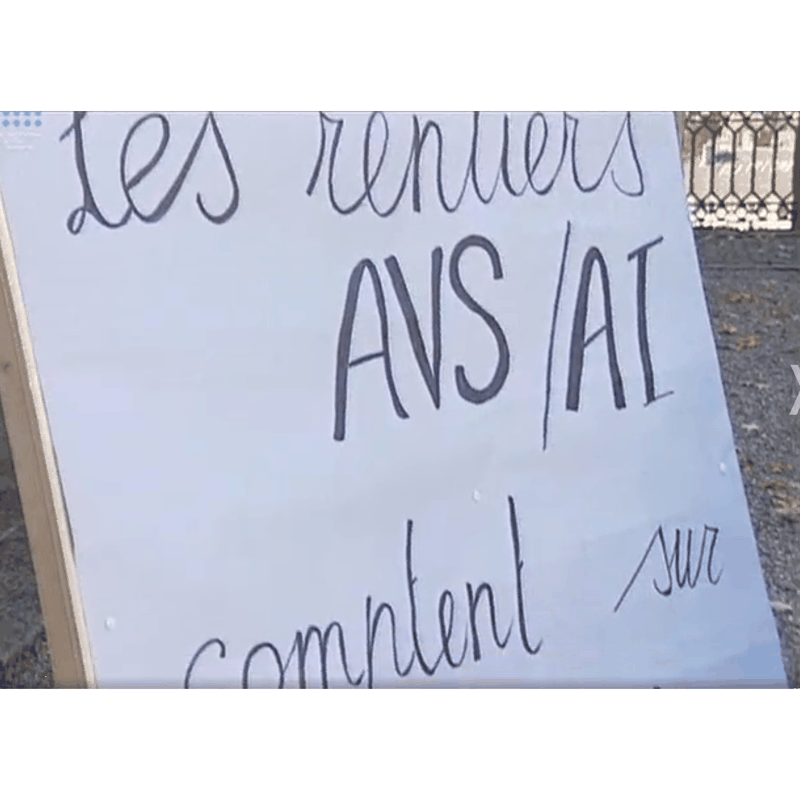 Les rentiers
AVS/AI
comptent sur